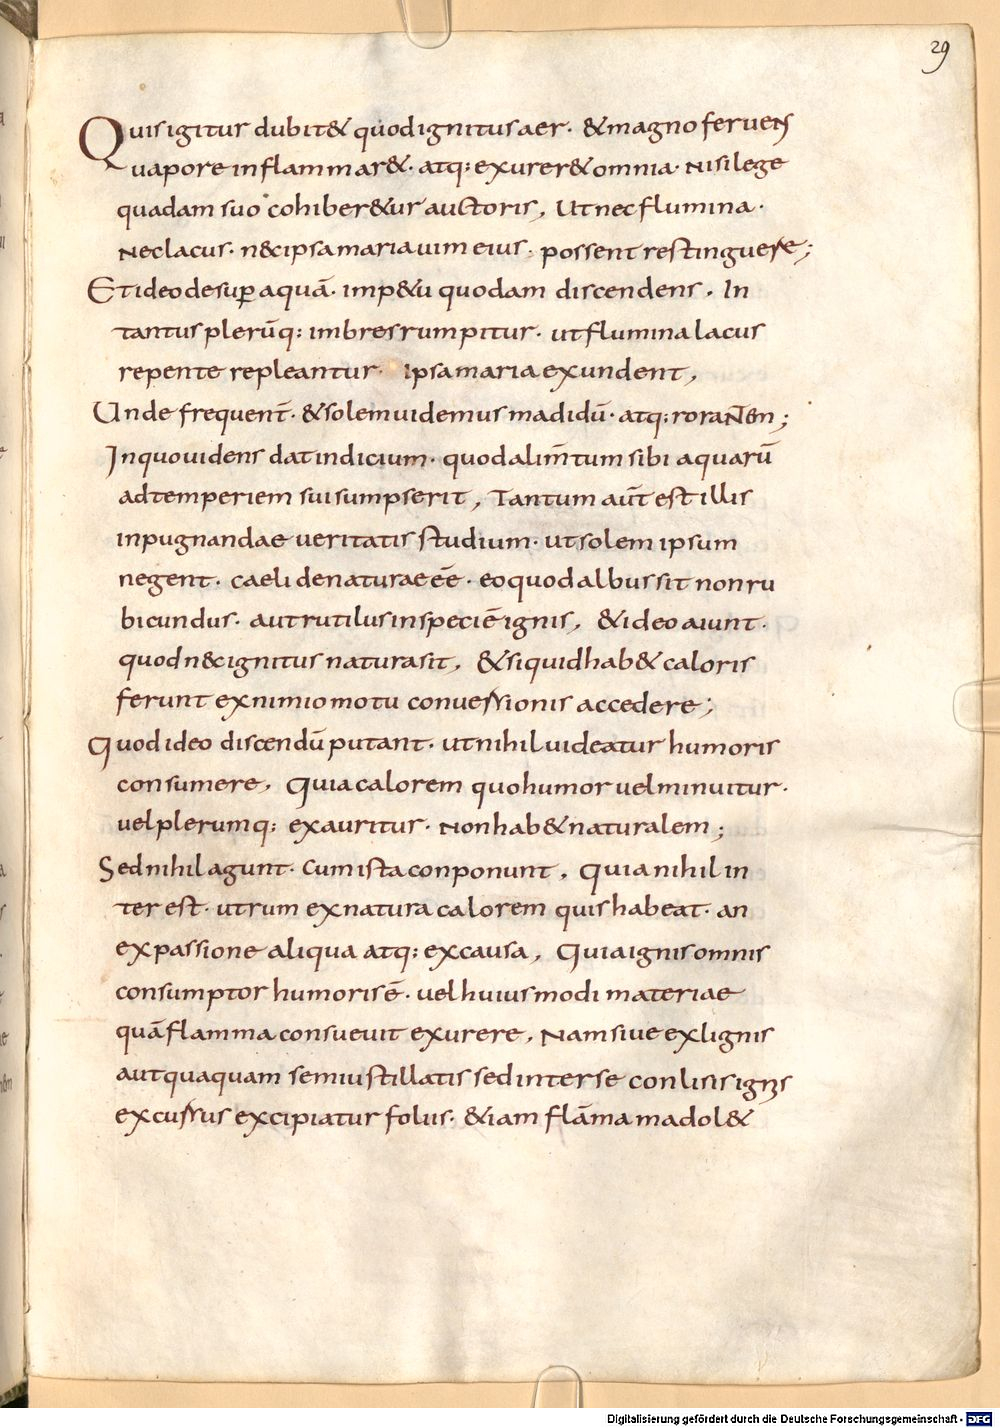 29
Quis igitur dubit& quod ignitus aer· & magno feruens
uapore inflammar&· atq: exurer& omnia· Nisi lege
quadam suo cohiber&ur auctoris, Ut nec flumina·
Nec lacus· n&c ipsa maria uim eius· possent restinguere;
Et ideo desup aquā· imp&u quodam discendens· In
tantus plerūq: imbres rumpitur· ut flumina lacus
repente repleantur· ipsa maria exundent,
Unde frequent̄· & solem uidemus madidū· atq: rorantem;
In quo uidens dat indicium· quod alim̄tum sibi aquarū
ad temperiem sui sumpserit, Tantum aūt est illis
inpugnandae ueritatis studium· ut solem ipsum
negent· caeli de naturae eē· eo quod albus sit non ru
bicundus· aut rutilus in speciē ignis, & ideo aiunt·
quod n&c ignitus natura sit, & siquid hab& caloris
ferunt ex nimio motu conuessionis accedere;
Quod ideo discendū putant· ut nihil uideatur humoris
consumere, Quia calorem quo humor uel minuitur·
uel plerumq: exauritur· Non hab& naturalem;
Sed nihil agunt· Cum ista conponunt, Quia nihil in
ter est· utrum ex natura calorem quis habeat· an
ex passione aliqua atq: ex causa, Quia ignis omnis
consumptor humoris ē· uel huiusmodi materiae
quā flamma consueuit exurere, Nam siue ex lignis
aut quaquam semiustillatis sed inter se conlisis ignis
excussus excipiatur foliis· & iam flāma madol&
Digitalisierung gefördert durch die Deutsche Forschungsgemeinschaft - DFG